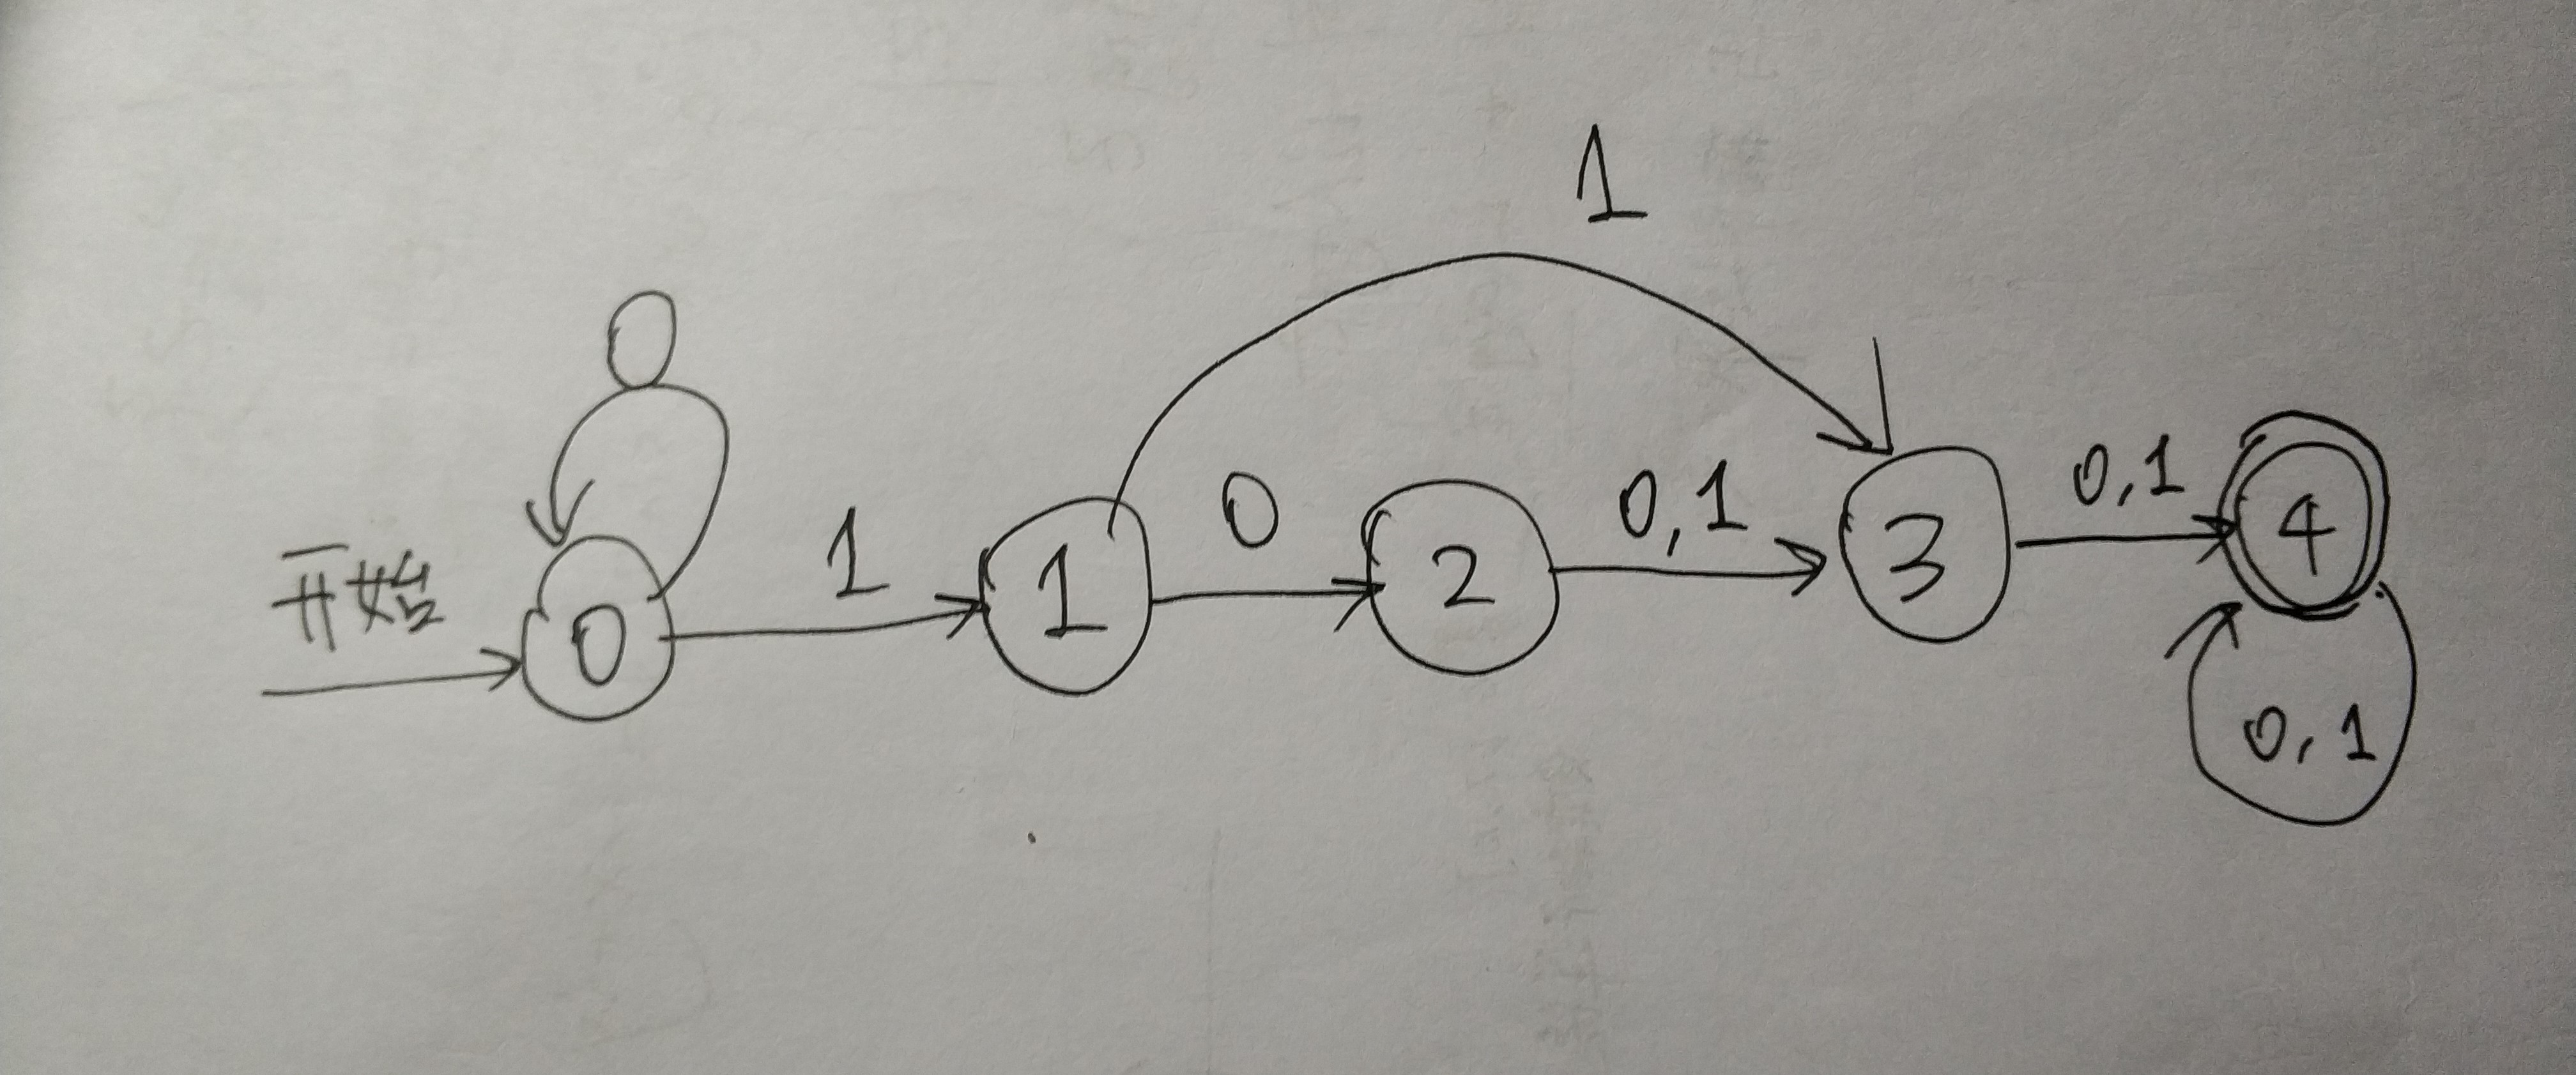 1
0
开始
0
1
1
0
2
0,1
3
0,1
4
0,1